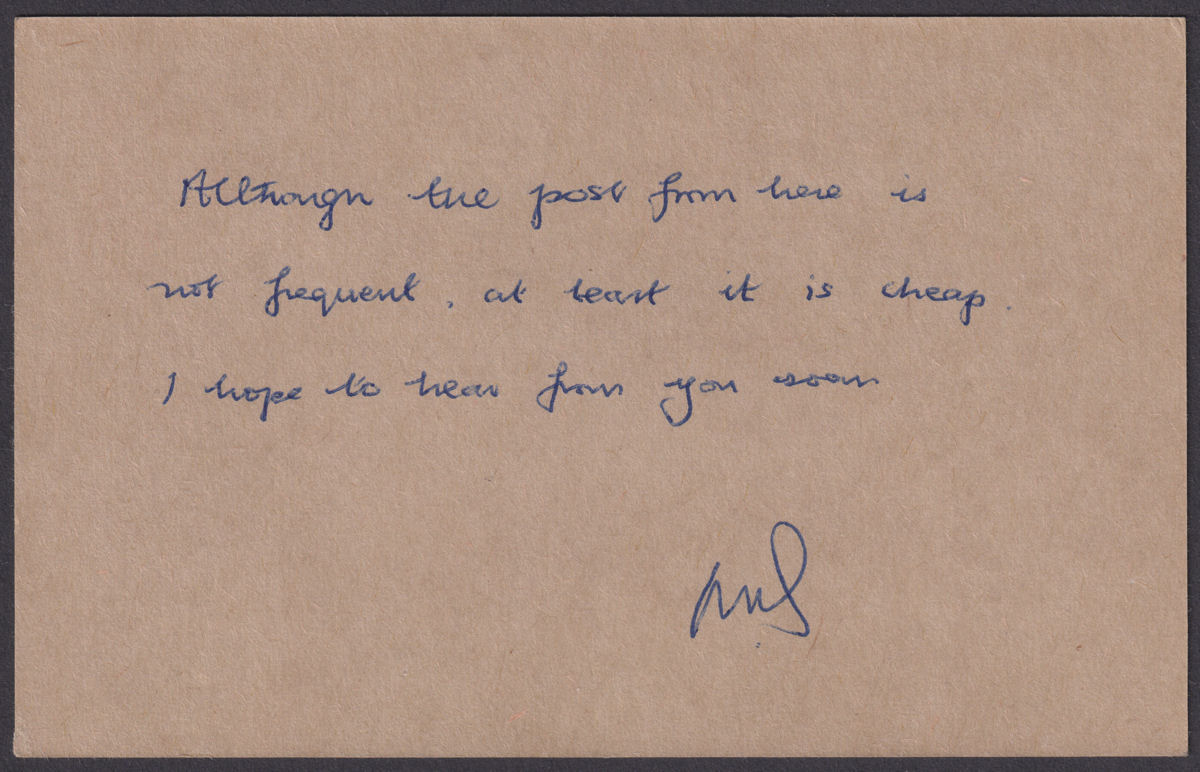 Although the post from here is
not frequent, at least it is cheap.
I hope to hear from you soon